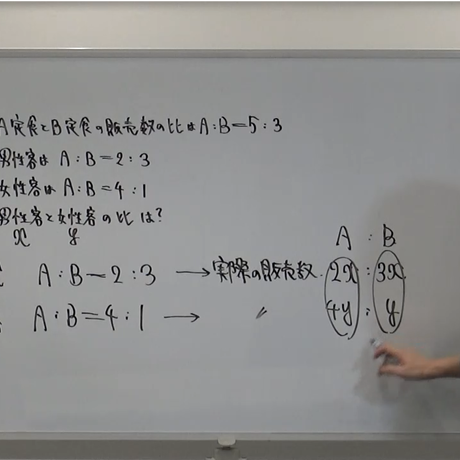 A定食とB定食の販売数の比はA:B=5:3
男性客は A:B=2:3
女性客は A:B=4:1
男性客と女性客の比は?
x y
A : B
A:B=2:3 → 実際の販売数. 2x : 3x
A:B=4:1 → 〃 4y : y